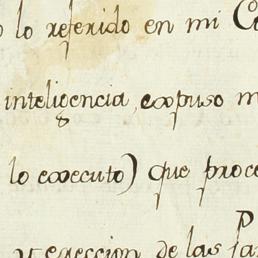 lo referido en mi
inteligencia, expuso
lo executo) que
y ereccion de las